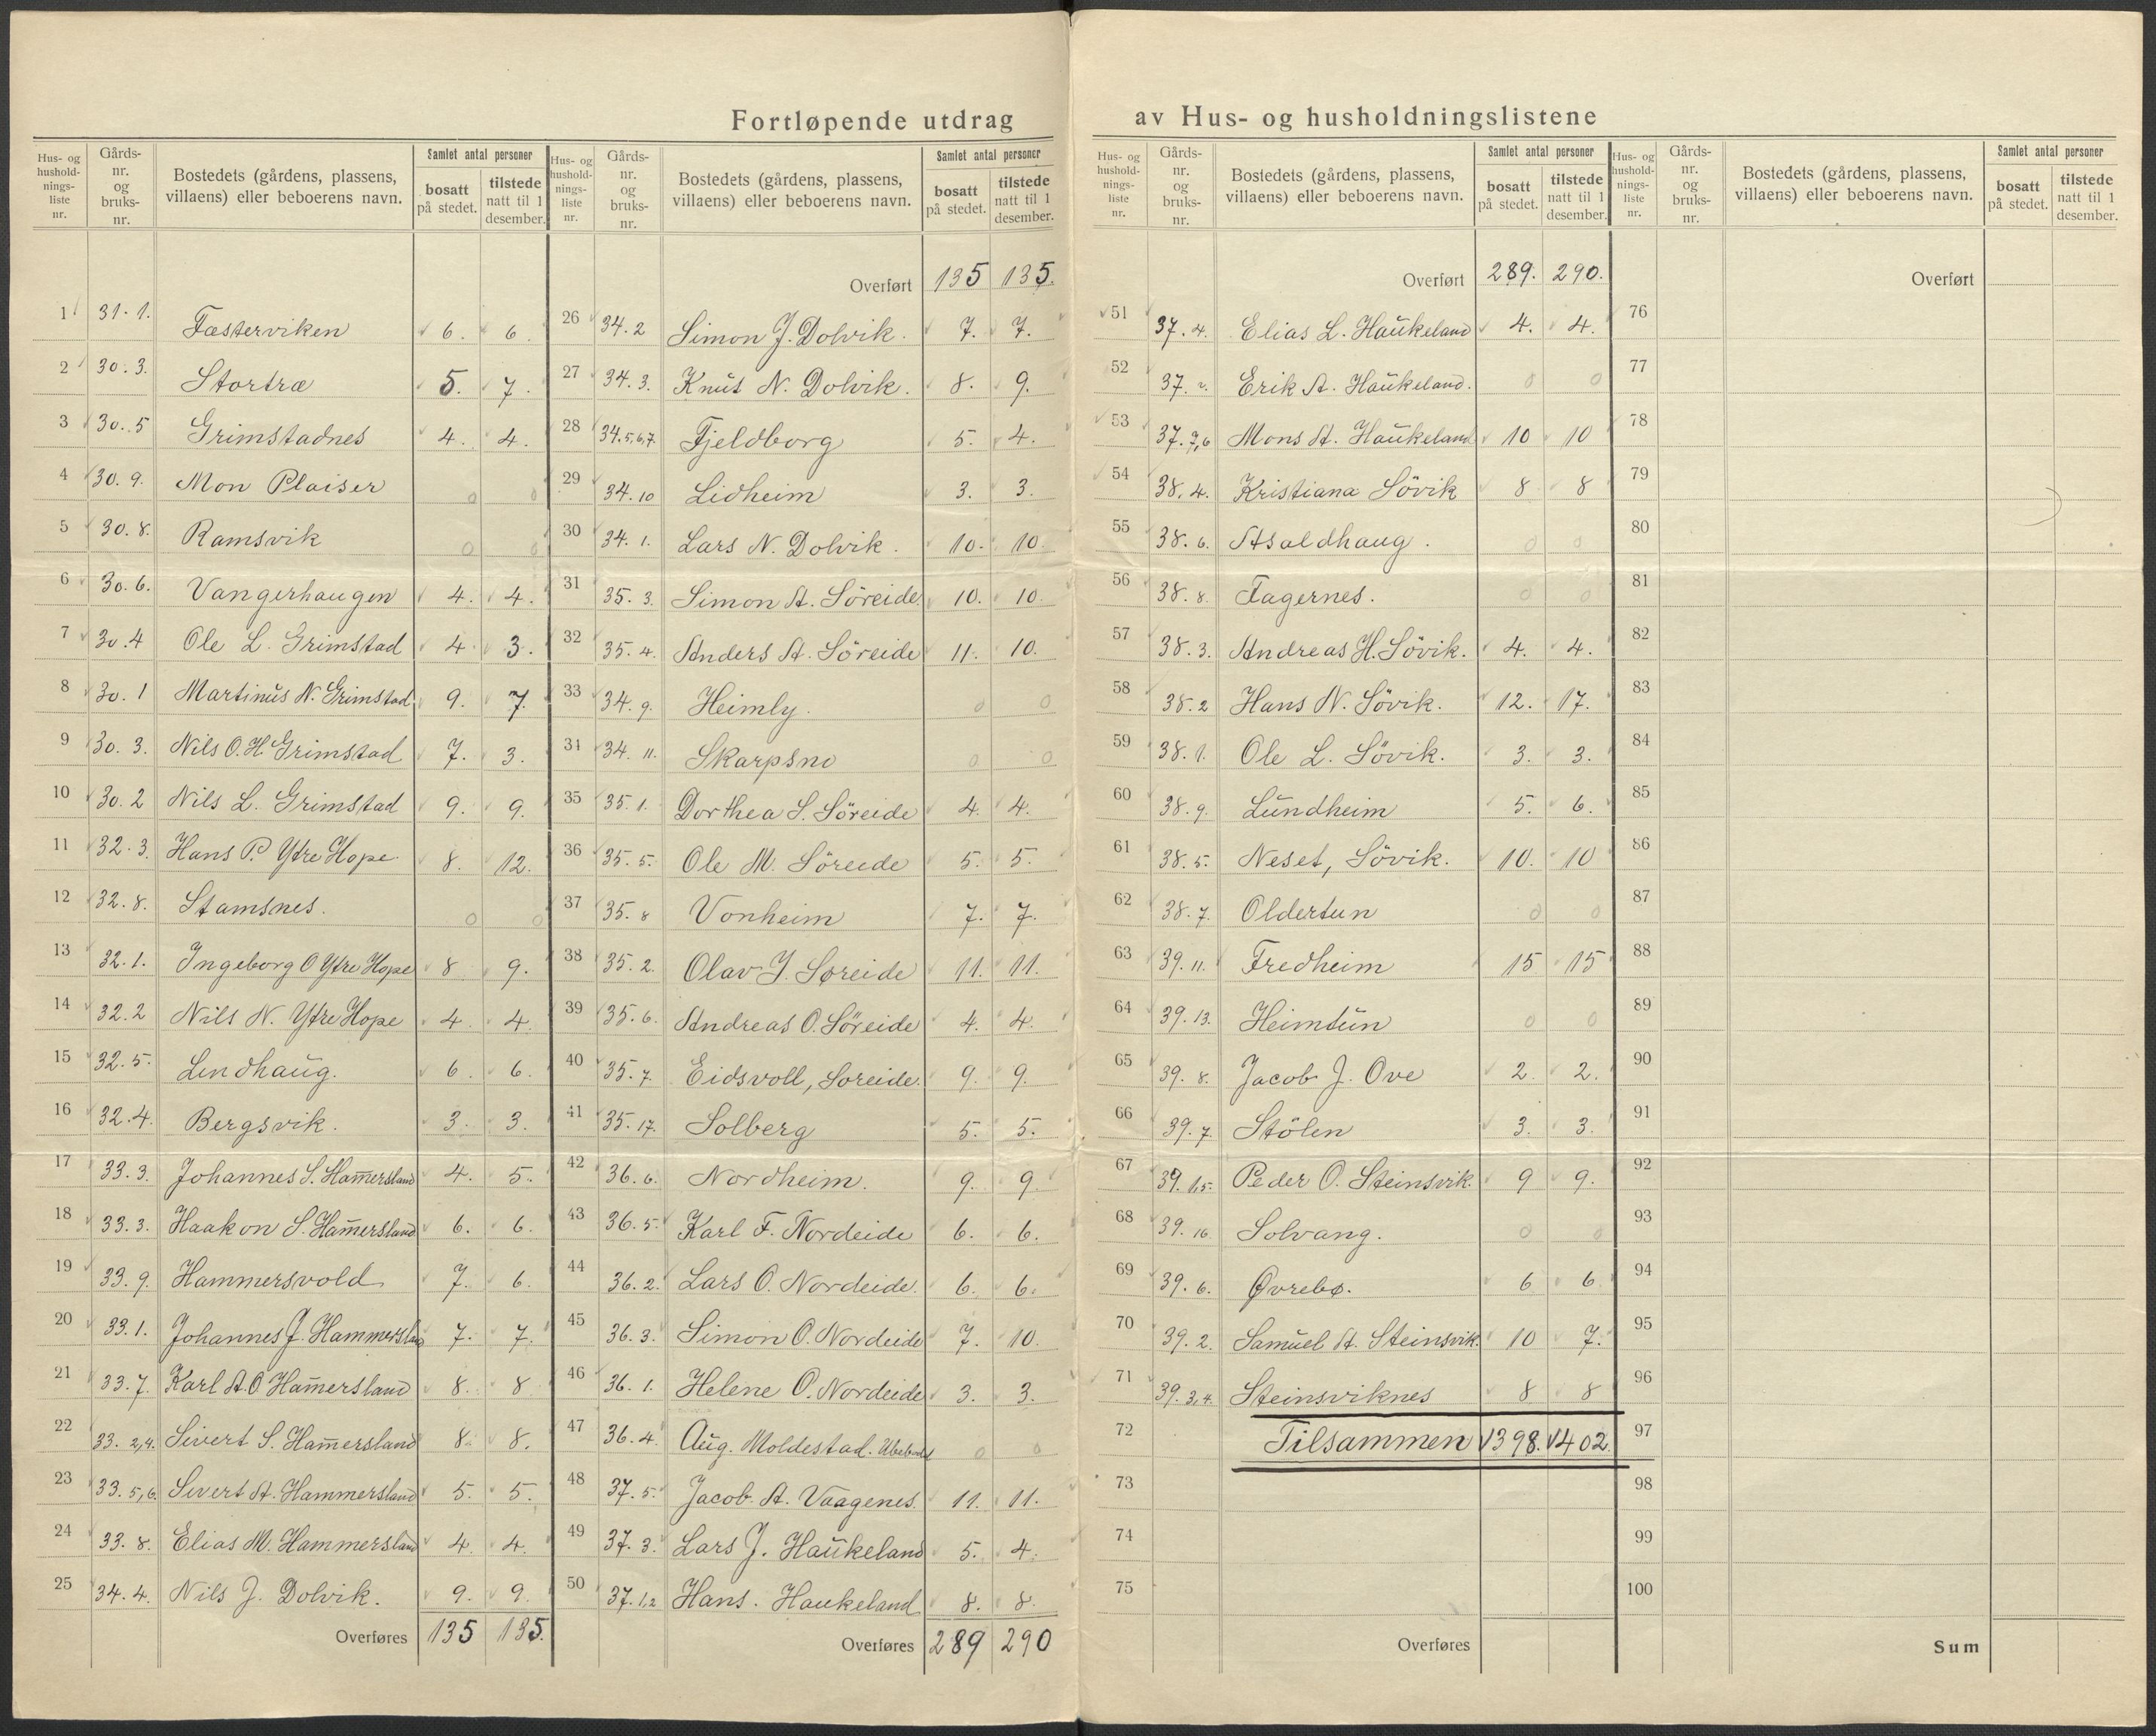 Fortløpende utdrag av Hus- og husholdningslistene
Hus- og hushold-nings-liste nr. Gårds-nr. og bruks-nr. Bostedets (gårdens, plassens, villaens) eller beboerens navn. Samlet antal personer bosatt på stedet. tilstede natt til 1 desember.
1 31.1. Fæsterviken 6. 6.
2 30.3. Stortræ 5. 7.
3 30.5 Grimstadnes 4. 4.
4 30.9. Mon Plaiser 0 0
5 30.8. Ramsvik 0 0
6 30.6. Vangerhaugen 4. 4.
7 30.4 Ole L. Grimstad 4. 3.
8 30.1 Martinus N. Grimstad. 9. 7.
9 30.3. Nils O.H. Grimstad 7. 3.
10 30.2 Nils L. Grimstad 9. 9.
11 32.3. Hans P. Ytre Hope 8. 12.
12 32.8. Stamsnes. 0 0
13 32.1. Ingeborg O Ytre Hope 8 9.
14 32.2 Nils N. Ytre Hope 4. 4.
15 32.5. Lindhaug. 6. 6.
16 32.4. Bergsvik. 3. 3.
17 33.3. Johannes S. Hamersland 4. 5.
18 33.3. Haakon S. Hamersland 6. 6.
19 33.9. Hammersvold 7. 6.
20 33.1. Johannes J. Hammersland 7. 7.
21 33.7. Karl A.O Hamersland 8. 8
22 33.2,4. Sivert S. Hamersland 8. 8.
23 33.5,6. Sivert A. Hammersland 5. 5.
24 33.8. Elias M. Hammersland 4. 4.
25 34.4. Nils J. Dolvik. 9. 9.
Overføres 135 135.
Hus- og hushold-nings-liste nr. Gårds-nr. og bruks-nr. Bostedets (gårdens, plassens, villaens) eller beboerens navn. Samlet antal personer bosatt på stedet. tilstede natt til 1 desember.
Overført 135 135.
26 34.2 Simon J. Dolvik. 7. 7.
27 34.3. Knut N. Dolvik. 8. 9.
28 34.5,6,7. Fjeldborg 5. 4.
29 34.10 Lidheim 3. 3.
30 34.1. Lars N. Dolvik. 10. 10.
31 35.3. Simon A. Söreide. 10. 10.
32 35.4. Anders A. Söreide 11. 10.
33 34.9. Heimly. 0 0
34 34.11. Skarpsno 0 0
35 35.1. Dorthea S. Söreide 4. 4.
36 35.5. Ole M. Söreide 5. 5.
37 35.8 Vonheim 7. 7.
38 35.2. Olav J. Søreide 11. 11.
39 35.6. Andreas O. Söreide 4. 4.
40 35.7. Eidsvoll, Soreide. 9. 9.
41 35.17. Solberg 5. 5.
42 36.6. Nordheim. 9. 9.
43 36.5. Karl F. Nordeide 6. 6.
44 36.2. Lars O. Nordeide. 6. 6.
45 36.3. Simon O. Nordeide 7. 10.
46 36.1. Helene O. Nordeide 3. 3.
47 36.4. Aug. Moldestad. Ubebodd 0 0
48 37.5. Jacob A. Vaagenes. 11. 11.
49 37.3. Lars J. Haukeland 5. 4.
50 37.1,2 Hans. Haukeland 8. 8.
Overføres 289 290
Hus- og hushold-nings-liste nr. Gårds-nr. og bruks-nr. Bostedets (gårdens, plassens, villaens) eller beboerens navn. Samlet antal personer bosatt på stedet. tilstede natt til 1 desember.
Overført 289. 290.
51 37.4. Elias L. Haukeland 4. 4.
52 37. Erik A. Haukeland. 0 0
53 37.7,6 Mons A. Haukeland 10 10
54 38.4. Kristiana Sövik 8 8
55 38.6. Asaldhaug. 0 0
56 38.8. Fagernes. 0 0
57 38.3. Andreas H. Sövik. 4. 4.
58 38.2 Hans N. Sövik. 12. 17.
59 38.1. Ole L. Sövik. 3. 3.
60 38.9. Lundheim 5. 6.
61 38.5. Neset, Sövik. 10. 10
62 38.7. Oldertun 0 0
63 39.11. Fredheim 15 15
64 39.13. Heimtun 0 0
65 39.8. Jacob J. Ove 2. 2.
66 39.7. Stölen 3. 3.
67 39.15. Peder O. Steinsvik. 9 9.
68 39.16 Solvang. 0 0
69 39.6. Øvrebø. 6 6
70 39.2. Samuel A. Steinsvik. 10 7.
71 39.3,4. Steinsviknes 8 8
72 Tilsammen 398. 402.
73
74
75
Overføres
Hus- og hushold-nings-liste nr. Gårds-nr. og bruks-nr. Bostedets (gårdens, plassens, villaens) eller beboerens navn. Samlet antal personer bosatt på stedet. tilstede natt til 1 desember.
Overført
76
77
78
79
80
81
82
83
84
85
86
87
88
89
90
91
92
93
94
95
96
97
98
99
100
Sum